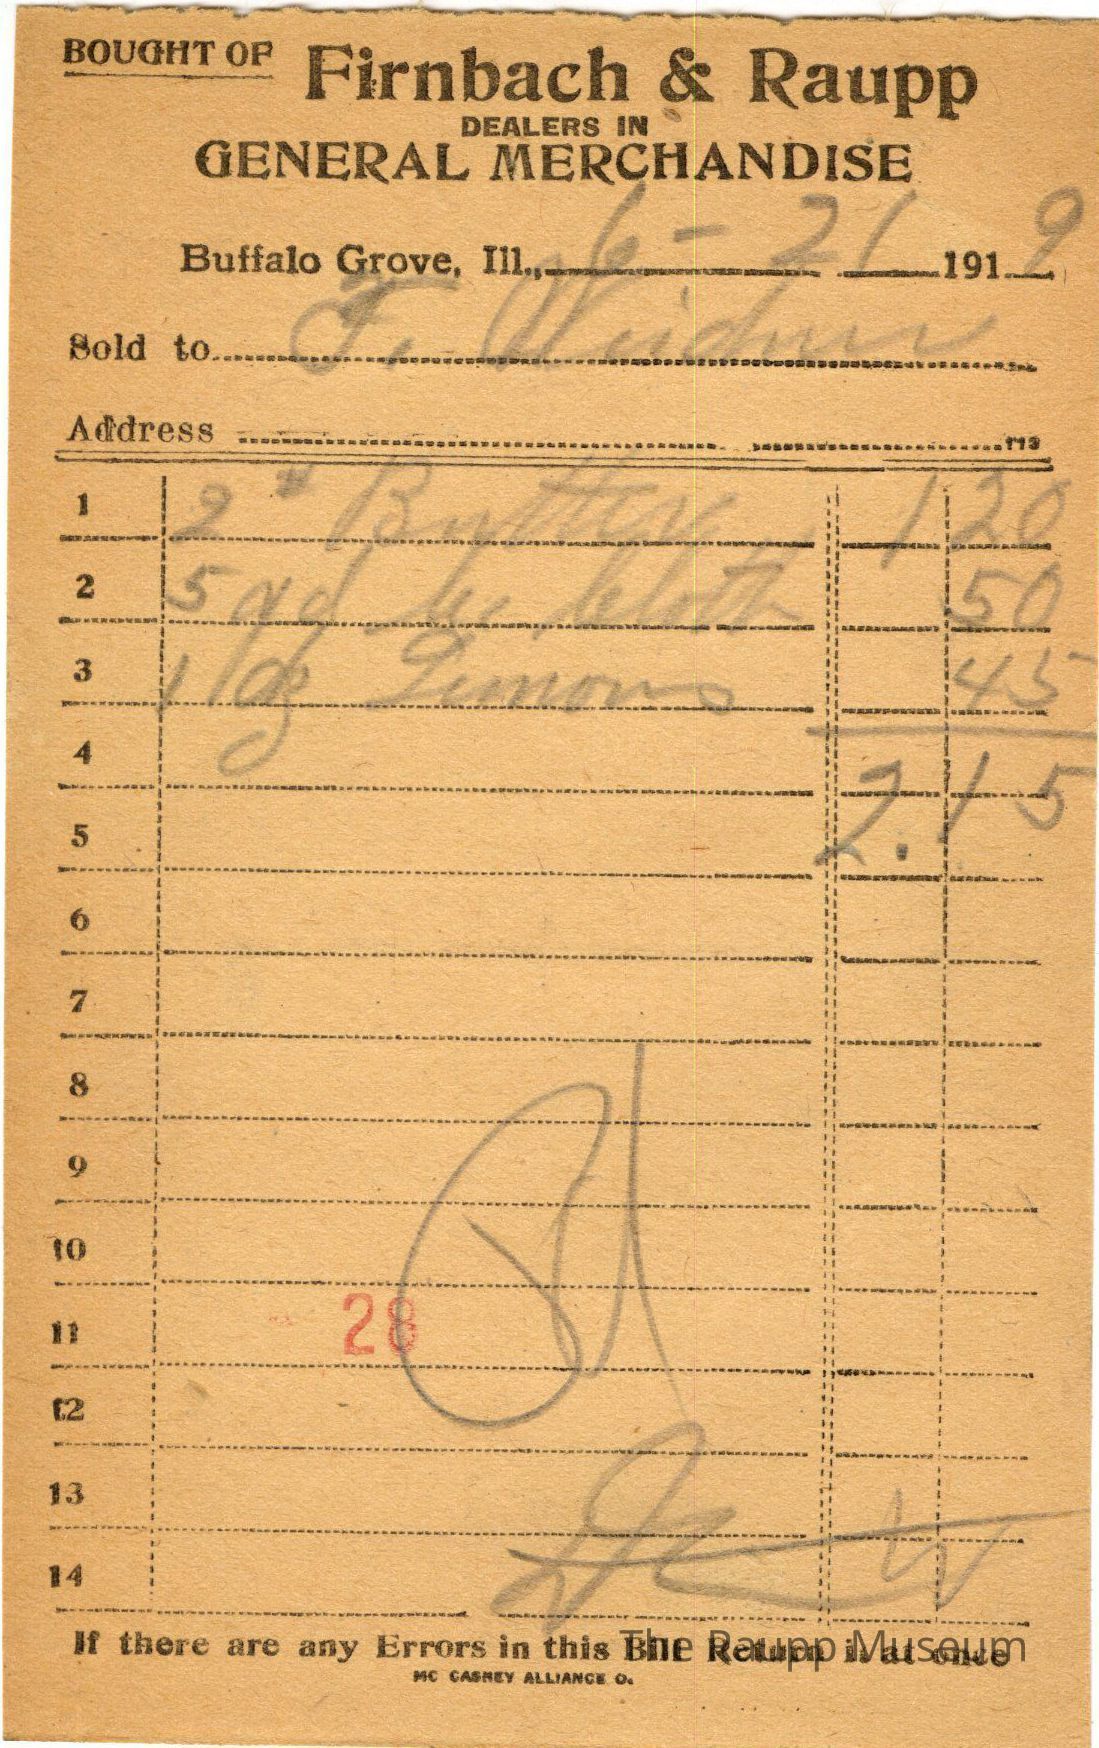 BOUGHT OF Firnbach & Raupp
DEALERS IN
GENERAL MERCHANDISE
Buffalo Grove, Ill., 6-21 1919
Sold to F. Weidner
Address
1 2 # Butter 1 20
2 5 yd cloth 50
3 1 dz Lemons 45
4 2.15
5
6
7
8
9
10
28
11
12
13
14
If there are any Errors in this Bill Return it at once
The Raupp Museum
MC CASKEY ALLIANCE O.